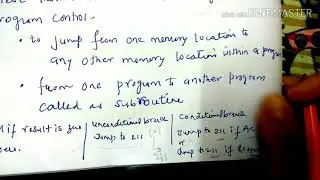 program control.
• to jump from one memory location to
any other memory location within a
• from one program to another program
called as subroutine
if result is zero
unconditional branch
Jump to 211
conditional branch
Jump to 211 if
or
Jump to 211 if
MADE WITH KINEMASTER